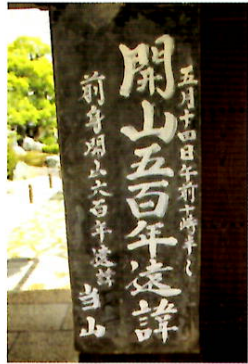 五月十四日午前十時半〜
開山五百年遠諱
前身開山六百年遠諱 当山